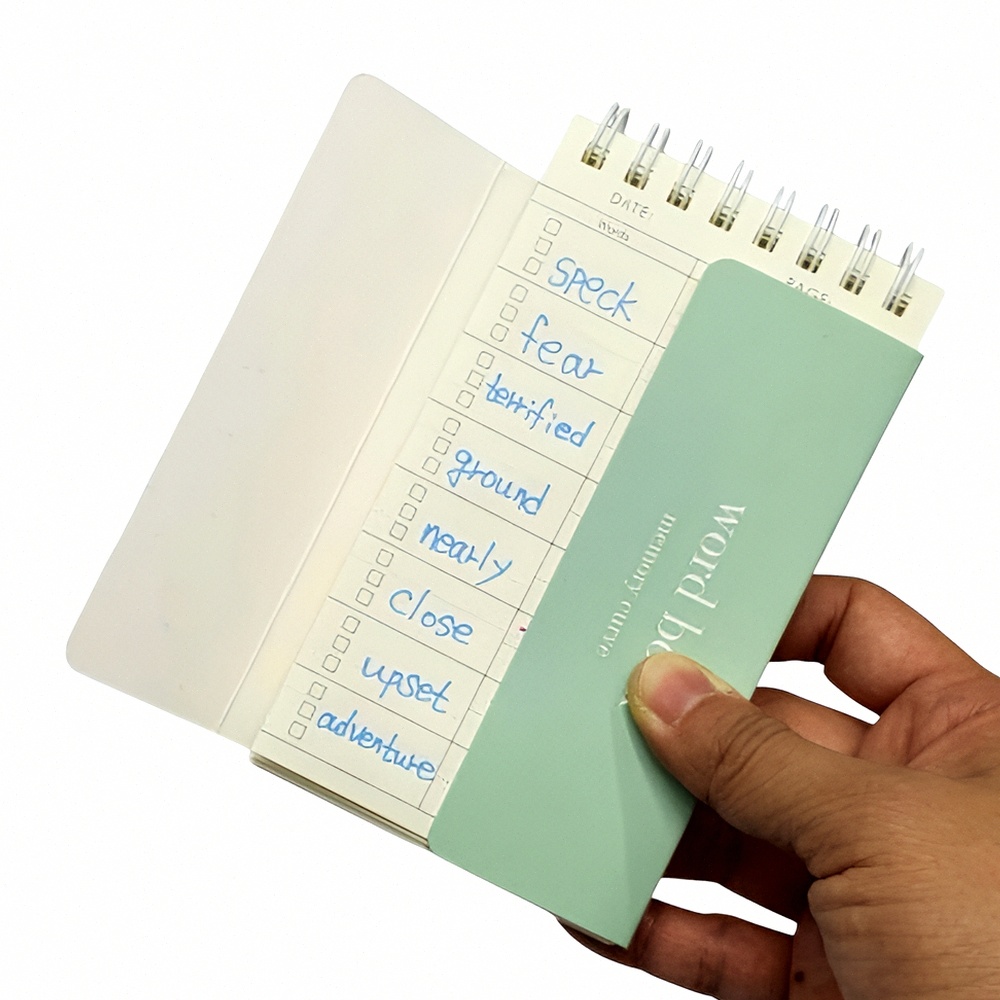 DATE:
PAGE:
Words
speck
fear
terrified
ground
nearly
close
upset
adventure
word
memory curve